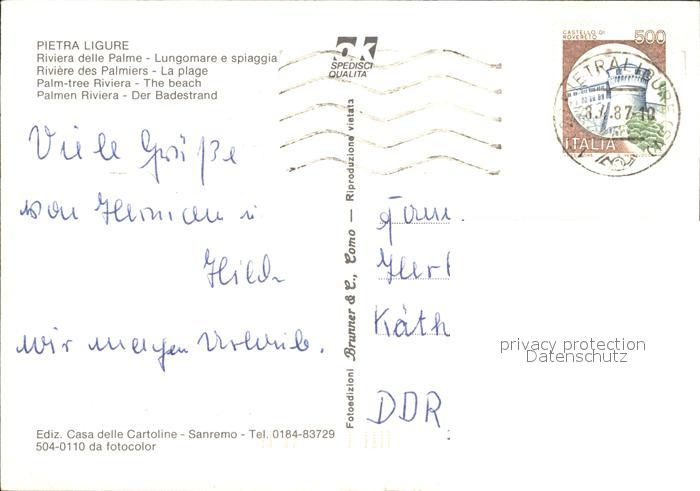 PIETRA LIGURE
Riviera delle Palme - Lungomare e spiaggia
Rivière des Palmiers - La plage
Palm-tree Riviera - The beach
Palmen Riviera - Der Badestrand
ok
SPEDISCI
QUALITA'
CASTELLO DI
ROVERETO
500
ITALIA
PIETRA LIGURE
Viele Grüße
von Herman u
Hilde
wir machen Urlaub.
Fotoedizioni Brunner & C., Como — Riproduzione vietata
Fam.
Käth
DDR
privacy protection
Datenschutz
Ediz. Casa delle Cartoline - Sanremo - Tel. 0184-83729
504-0110 da fotocolor